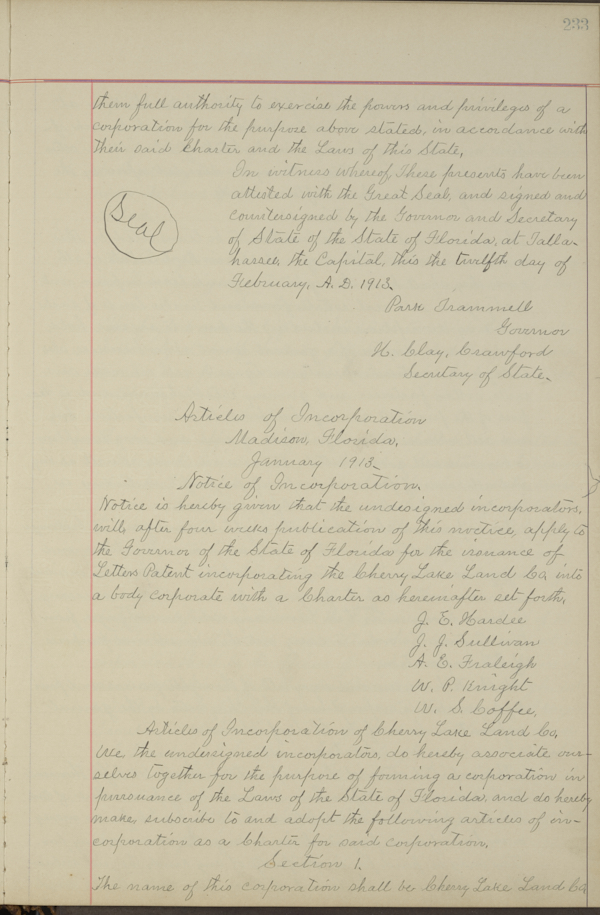 233
them full authority to exercise the powers and privileges of a
corporation for the purpose above stated, in accordance with
their said Charter and the Laws of this State,
In witness whereof, These presents have been
attested with the Great Seal, and signed and
countersigned by the Governor and Secretary
of State of the State of Florida, at Talla-
hassee, the Capital, this the twelfth day of
February, A. D. 1913.
Seal
Park Trammell
Governor
H. Clay, Crawford
Secretary of State.
Articles of Incorporation
Madison, Florida,
January 1913.
Notice of Incorporation.
Notice is hereby given that the undesigned incorporators,
will, after four weeks publication of this noctice, apply to
the Governor of the State of Florida for the issuance of
Letters Patent incorporating the Cherry Lake Land Co, into
a body corporate with a Charter as hereinafter set forth,
J. E. Hardee
J. J. Sullivan
A. E. Fraleigh
W. P. Knight
W. S. Coffee,
Articles of Incorporation of Cherry Lake Land Co,
We the undersigned incorporators, do hereby associate our-
selves together for the purpose of forming a corporation in
pursuance of the Laws of the State of Florida, and do hereby
make, subscribe to and adopt the following articles of in-
corporation as a Charter for said corporation,
Section 1.
The name of this corporation shall be Cherry Lake Land Co,